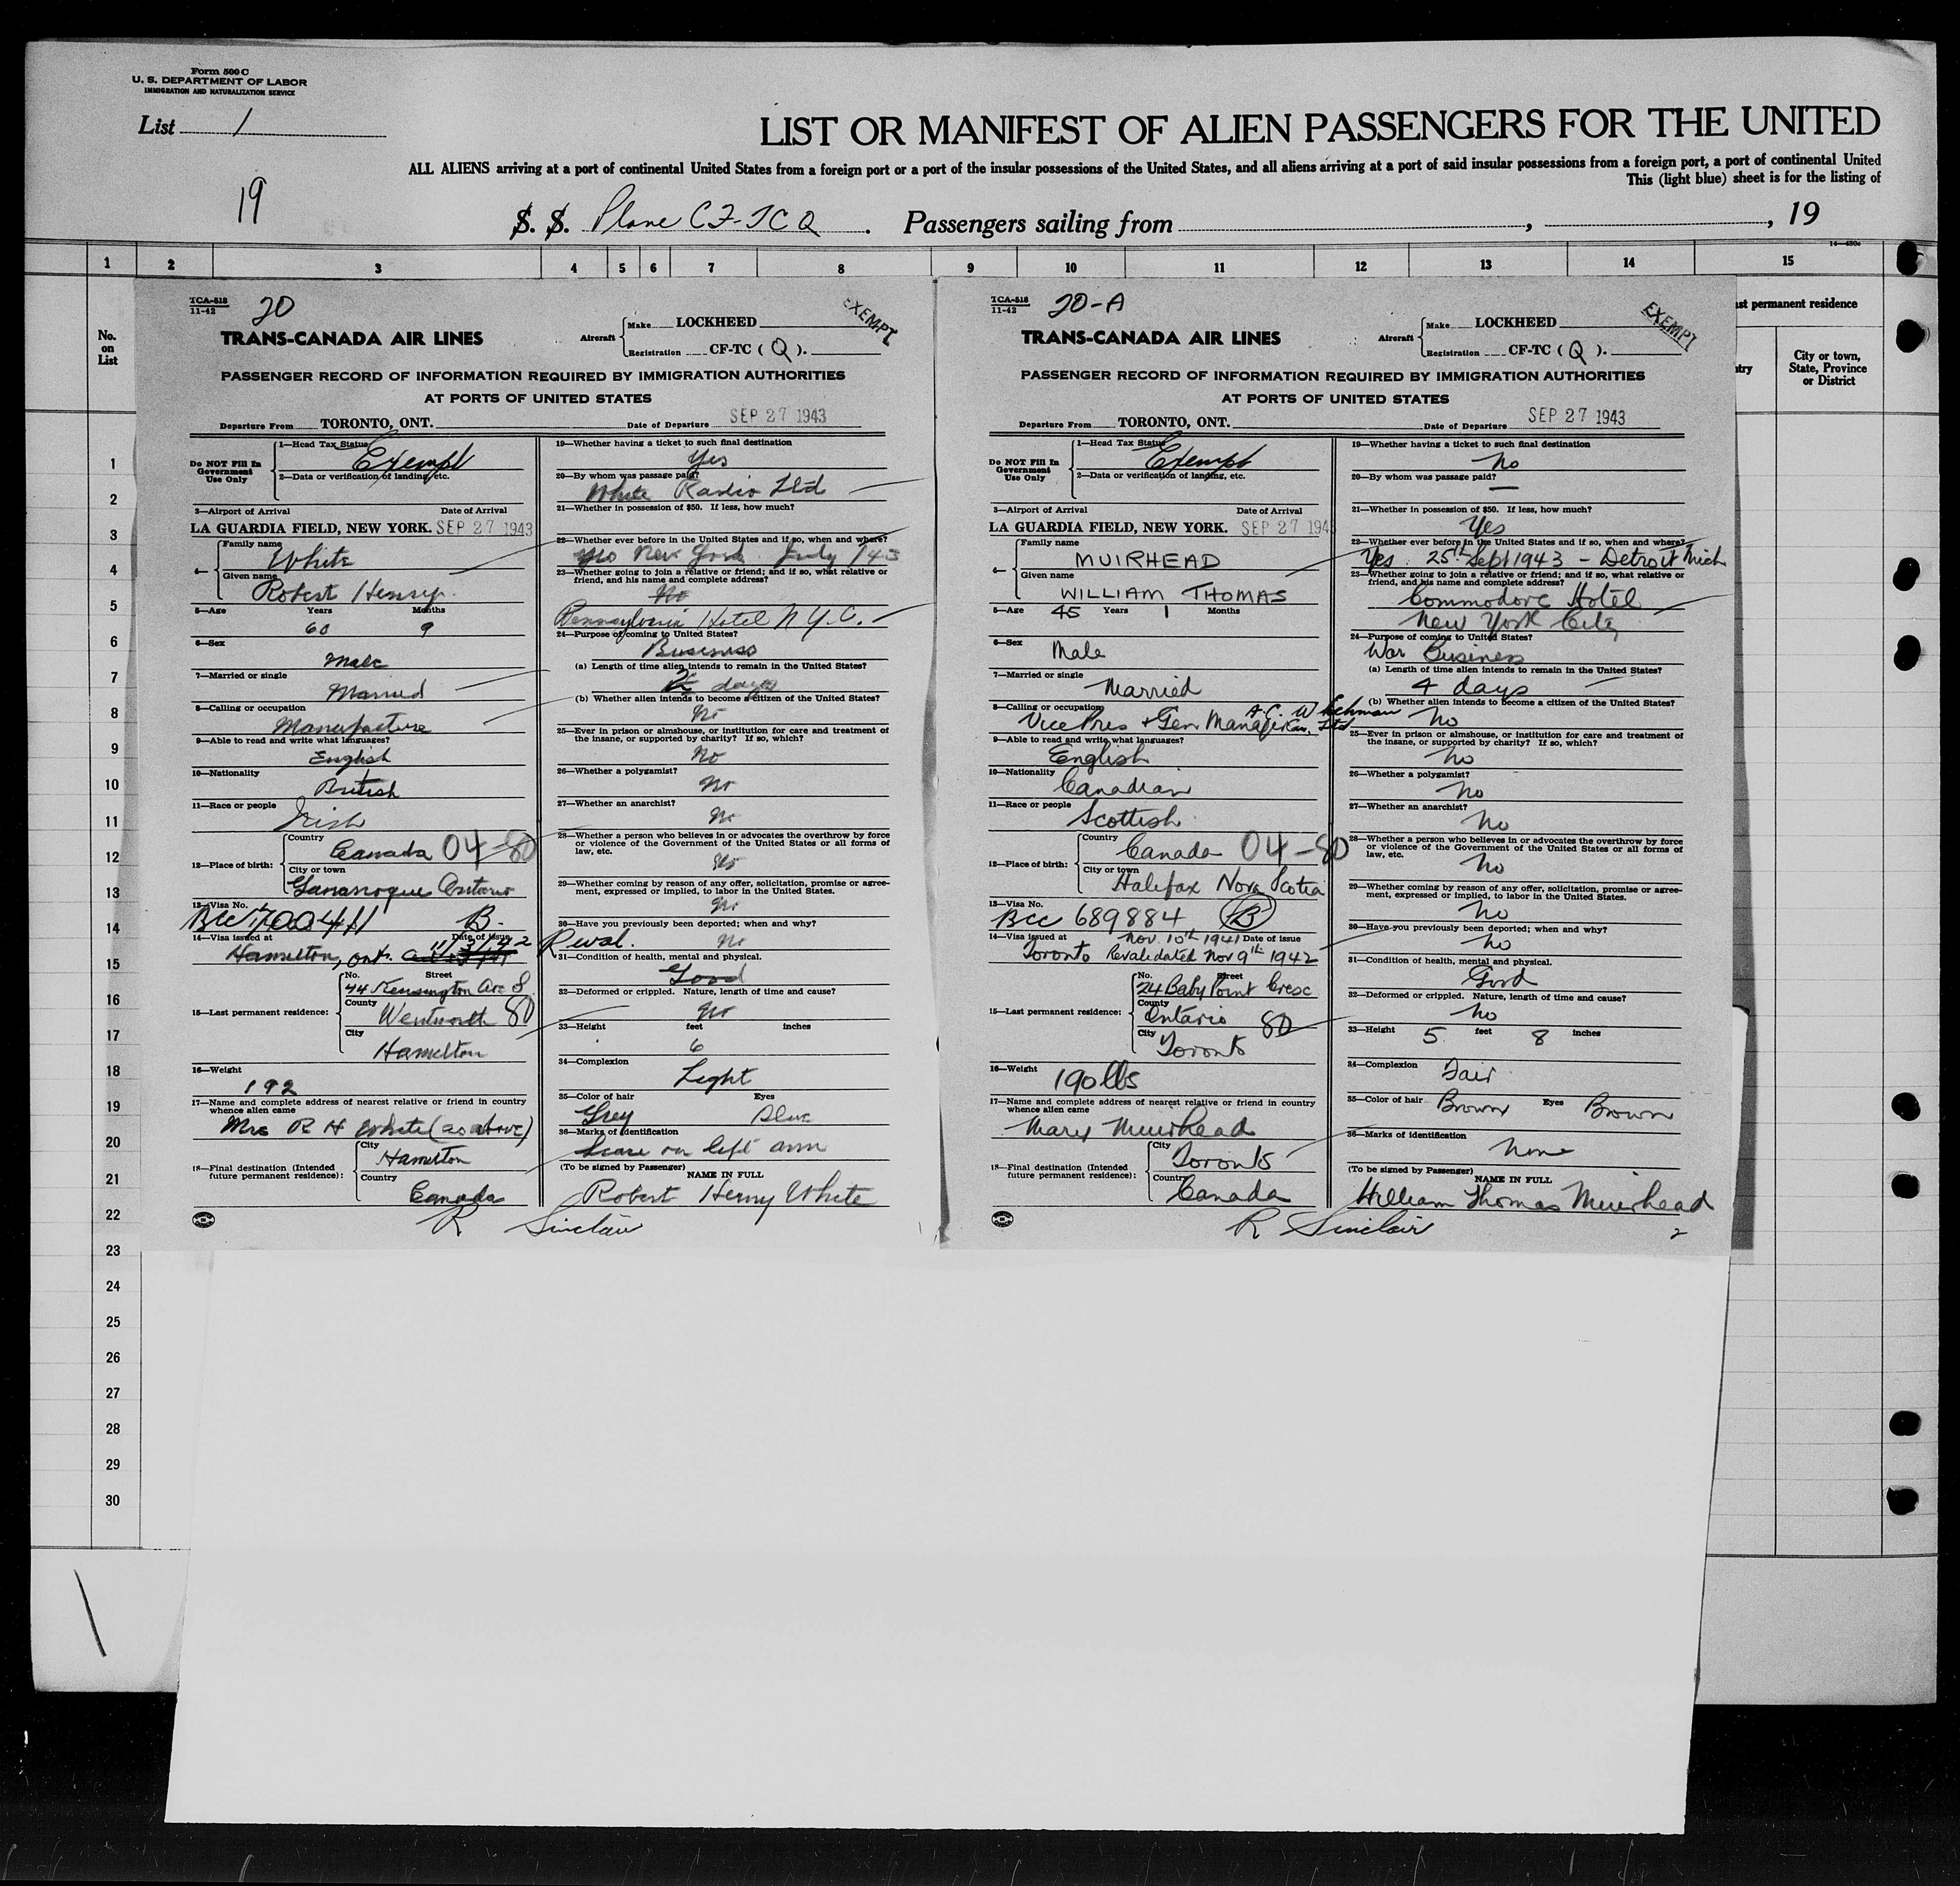 Form 500 C
U. S. DEPARTMENT OF LABOR
IMMIGRATION AND NATURALIZATION SERVICE
List 1
LIST OR MANIFEST OF ALIEN PASSENGERS FOR THE UNITED
ALL ALIENS arriving at a port of continental United States from a foreign port or a port of the insular possessions of the United States, and all aliens arriving at a port of said insular possessions from a foreign port, a port of continental United
This (light blue) sheet is for the listing of
19
S. S. Plane CF-TCQ. Passengers sailing from , , 19
1 2 3 4 5 6 7 8 9 10 11 12 13 14 15
No. on List
ast permanent residence
ntry
City or town, State, Province or District
1
2
3
4
5
6
7
8
9
10
11
12
13
14
15
16
17
18
19
20
21
22
23
24
25
26
27
28
29
30
TCA-518
11-42
20
EXEMPT
TRANS-CANADA AIR LINES
Aircraft Make LOCKHEED
Registration CF-TC ( Q ).
PASSENGER RECORD OF INFORMATION REQUIRED BY IMMIGRATION AUTHORITIES
AT PORTS OF UNITED STATES
Departure From TORONTO, ONT. Date of Departure SEP 27 1943
Do NOT Fill In Government Use Only
1—Head Tax Status
Exempt
2—Data or verification of landing, etc.
3—Airport of Arrival Date of Arrival
LA GUARDIA FIELD, NEW YORK. SEP 27 1943
4— Family name
White
Given name
Robert Henry
5—Age Years Months
60 9
6—Sex
Male
7—Married or single
Married
8—Calling or occupation
Manufacture
9—Able to read and write what languages?
English
10—Nationality
British
11—Race or people
Irish
12—Place of birth:
Country
Canada 04-80
City or town
Gananoque Ontario
13—Visa No.
BCC 700411 B-
14—Visa issued at Date of issue
Hamilton, Ont. 11/3/42
15—Last permanent residence:
No. Street
44 Kensington Ave S.
County
Wentworth 80
City
Hamilton
16—Weight
192
17—Name and complete address of nearest relative or friend in country whence alien came
Mrs R H White (as above)
18—Final destination (Intended future permanent residence):
City
Hamilton
Country
Canada
19—Whether having a ticket to such final destination
Yes
20—By whom was passage paid?
White Radio Ltd
21—Whether in possession of $50. If less, how much?
22—Whether ever before in the United States and if so, when and where?
Yes New York July /43
23—Whether going to join a relative or friend; and if so, what relative or friend, and his name and complete address?
No
Pennsylvania Hotel N.Y.C.
24—Purpose of coming to United States?
Business
(a) Length of time alien intends to remain in the United States?
2 days
(b) Whether alien intends to become a citizen of the United States?
No
25—Ever in prison or almshouse, or institution for care and treatment of the insane, or supported by charity? If so, which?
No
26—Whether a polygamist?
No
27—Whether an anarchist?
No
28—Whether a person who believes in or advocates the overthrow by force or violence of the Government of the United States or all forms of law, etc.
No
29—Whether coming by reason of any offer, solicitation, promise or agreement, expressed or implied, to labor in the United States.
No
30—Have you previously been deported; when and why?
Reval. No
31—Condition of health, mental and physical.
Good
32—Deformed or crippled. Nature, length of time and cause?
No
33—Height feet inches
6
34—Complexion
Light
35—Color of hair Eyes
Grey Blue
36—Marks of identification
Scare on left arm
(To be signed by Passenger) NAME IN FULL
Robert Henry White
R Sinclair
TCA-518
11-42
20-A
EXEMPT
TRANS-CANADA AIR LINES
Aircraft Make LOCKHEED
Registration CF-TC ( Q ).
PASSENGER RECORD OF INFORMATION REQUIRED BY IMMIGRATION AUTHORITIES
AT PORTS OF UNITED STATES
Departure From TORONTO, ONT. Date of Departure SEP 27 1943
Do NOT Fill In Government Use Only
1—Head Tax Status
Exempt
2—Data or verification of landing, etc.
3—Airport of Arrival Date of Arrival
LA GUARDIA FIELD, NEW YORK. SEP 27 194
4— Family name
MUIRHEAD
Given name
WILLIAM THOMAS
5—Age 45 Years 1 Months
6—Sex
Male
7—Married or single
Married
8—Calling or occupation
Vice Pres + Gen Manager A.C. Can. Ltd
9—Able to read and write what languages?
English
10—Nationality
Canadian
11—Race or people
Scottish
12—Place of birth:
Country
Canada 04-80
City or town
Halifax Nova Scotia
13—Visa No.
BCC 689884 B
14—Visa issued at Nov. 10th 1941 Date of issue
Toronto Revalidated Nov 9th 1942
15—Last permanent residence:
No. Street
24 Baby Point Cresc
County
Ontario 80
City
Toronto
16—Weight
190 lbs
17—Name and complete address of nearest relative or friend in country whence alien came
Mary Muirhead
18—Final destination (Intended future permanent residence):
City
Toronto
Country
Canada
19—Whether having a ticket to such final destination
No
20—By whom was passage paid?
—
21—Whether in possession of $50. If less, how much?
Yes
22—Whether ever before in the United States and if so, when and where?
Yes. 25th Sept 1943 - Detroit Mich
23—Whether going to join a relative or friend; and if so, what relative or friend, and his name and complete address?
Commodore Hotel
New York City
24—Purpose of coming to United States?
War Business
(a) Length of time alien intends to remain in the United States?
4 days
(b) Whether alien intends to become a citizen of the United States?
No
25—Ever in prison or almshouse, or institution for care and treatment of the insane, or supported by charity? If so, which?
No
26—Whether a polygamist?
No
27—Whether an anarchist?
No
28—Whether a person who believes in or advocates the overthrow by force or violence of the Government of the United States or all forms of law, etc.
No
29—Whether coming by reason of any offer, solicitation, promise or agreement, expressed or implied, to labor in the United States.
No
30—Have you previously been deported; when and why?
No
31—Condition of health, mental and physical.
Good
32—Deformed or crippled. Nature, length of time and cause?
No
33—Height 5 feet 8 inches
34—Complexion
Fair
35—Color of hair Brown Eyes Brown
36—Marks of identification
None
(To be signed by Passenger) NAME IN FULL
William Thomas Muirhead
R Sinclair
2